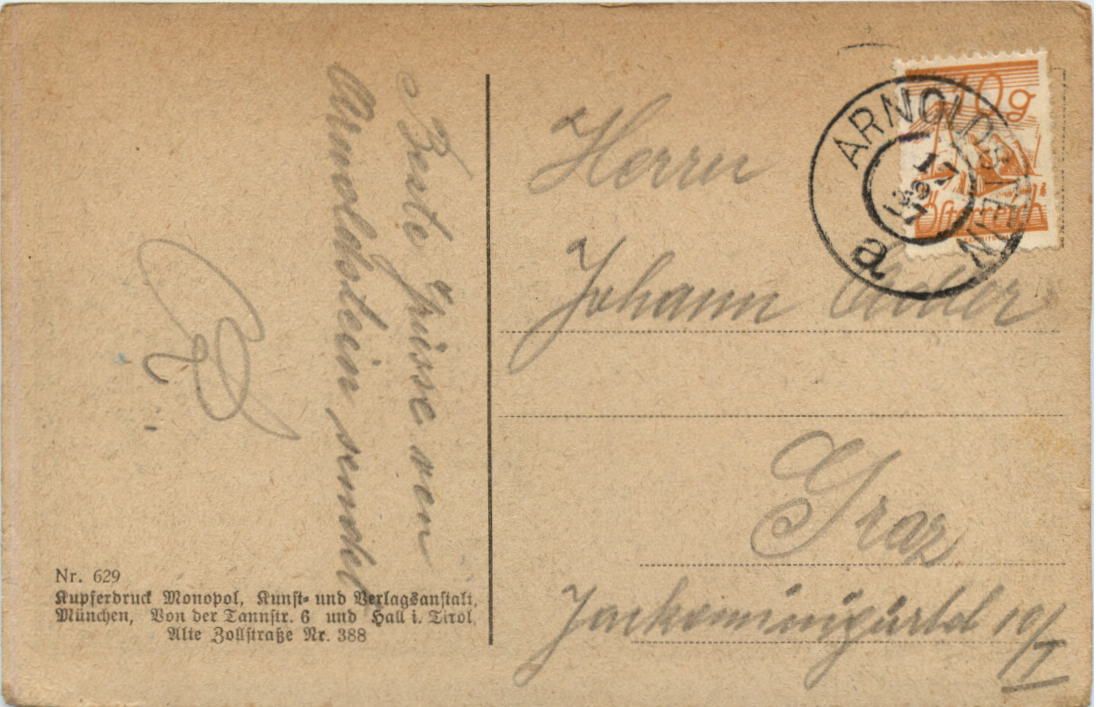 Beste Grüsse von
Arnoldstein sendet
Nr. 629
Kupferdruck Monopol, Kunst- und Verlagsanstalt,
München, Von der Tannstr. 6 und Hall i. Tirol
Alte Zollstraße Nr. 388
10 g
Österreich
ARNOLDSTEIN
a
Herrn
Johann
Graz
Jackominigürtel 10/I